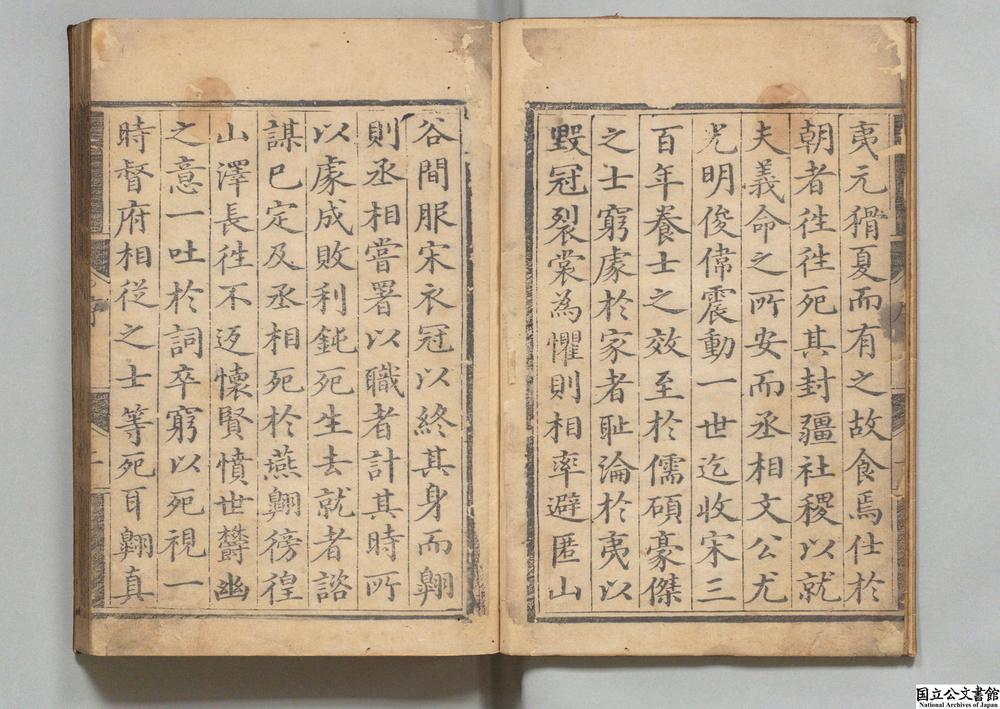 夷元猾夏而有之故食焉仕於
朝者徃徃死其封疆社稷以就
夫義命之所安而丞相文公尤
光明俊偉震動一世迄收宋三
百年養士之效至於儒碩豪傑
之士窮處於家者耻淪於夷以
毀冠裂裳為懼則相率避匿山
谷間服宋衣冠以終其身而翱
則丞相嘗署以職者計其時所
以處成敗利鈍死生去就者諮
謀已定及丞相死於燕翱徬徨
山澤長徃不返懷賢憤世欝幽
之意一吐於詞卒窮以死視一
時督府相從之士等死耳翱真
国立公文書館
National Archives of Japan